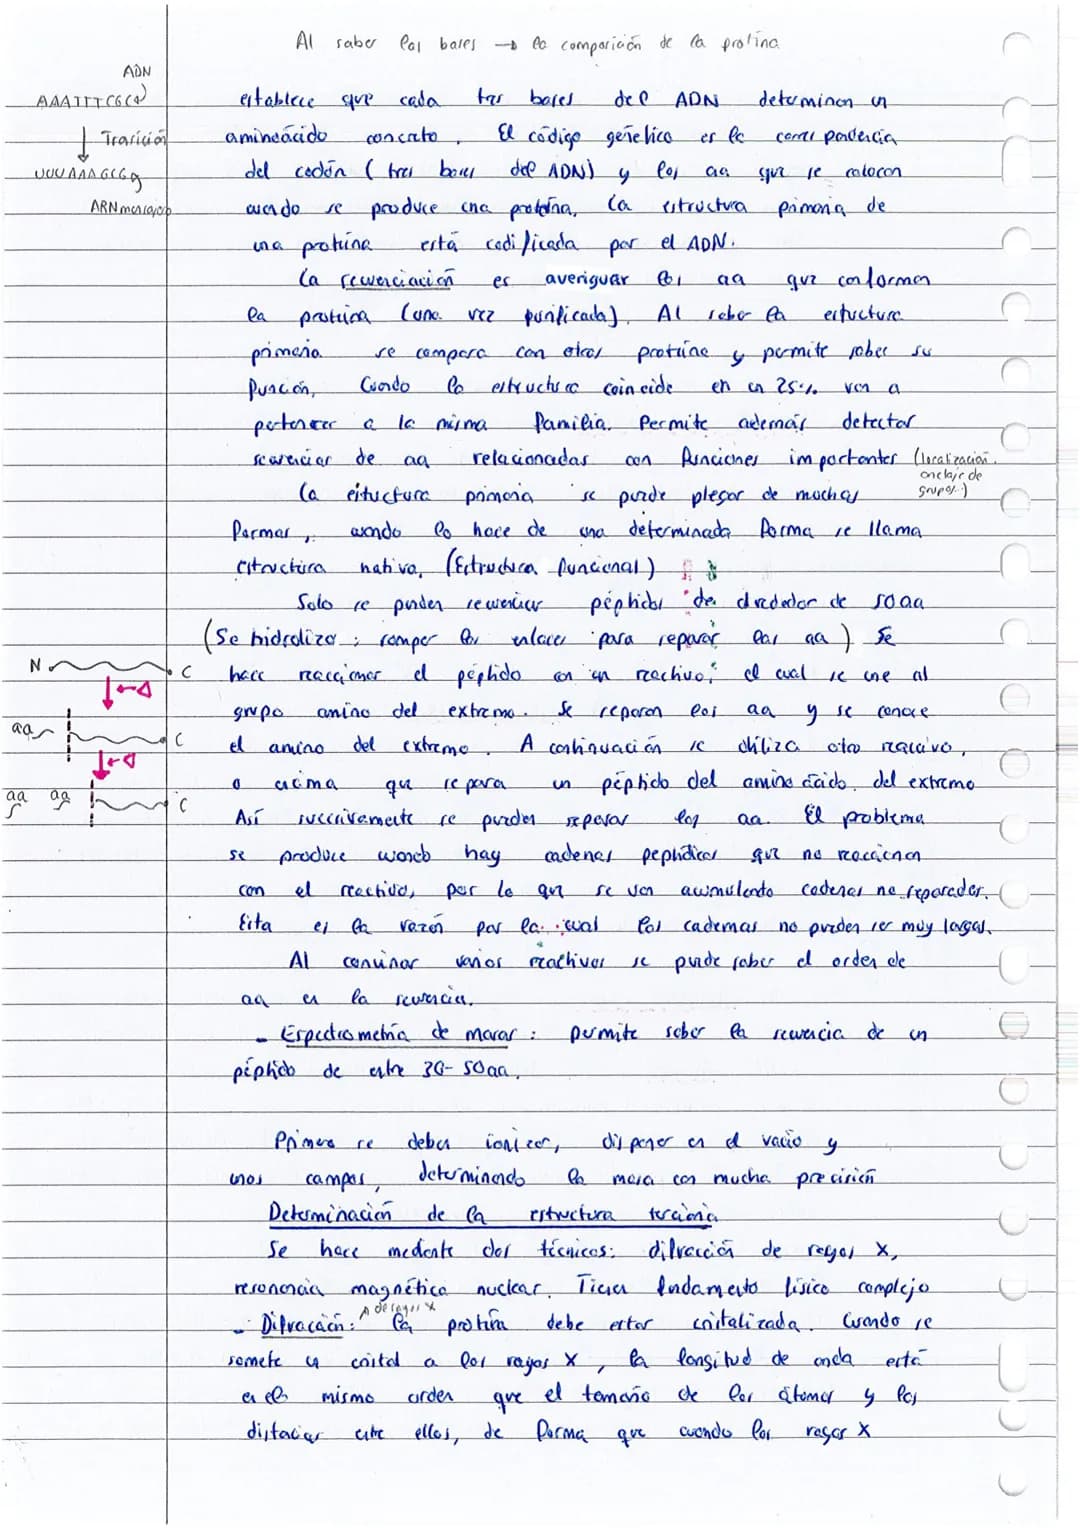 Al saber las bases → la composición de la protína
ADN
AAATTTCGC
↓ Trasición
UUUAAAGCG
ARN
establece que cada tres bases del ADN determinan un
aminoácido concreto. El código genetico es la correspondencia
del codón (tres bases del ADN) y los aa que se colocan
cuando se produce una proteína. La estructura primaria de
una protína está codificada por el ADN.
La secuenciación es averiguar los aa que conforman
la protína (una vez purificada). Al saber la estuctura
primaria se compara con otras proteína y permite saber su
función. Cuando la estructura coincide en un 25% van a
pertenecer a la misma familia. Permite además detectar
secuencias de aa relacionadas con funciones importantes (localización.
anclaje de
grupos..)
La estuctura primaria se puede plegar de muchas
formas, cuando lo hace de una determinada forma se llama
estructura nativa. (Estructura funcional)
Solo se pueden secuenciar péptidos de alrededor de 50aa
(Se hidroliza; romper los enlaces para separar los aa) Se
N C
hace reaccionar el péptido con un reactivo; el cual se une al
grupo amino del extremo. Se separan los aa y se conoce
aa C
el amino del extremo. A continuación se utiliza otro reactivo,
o encima que separa un péptido del amino ácido del extremo
aa aa C
Así sucesivamente se pueden separar los aa. El problema
se produce cuando hay cadenas peptídicas que no reaccionan
con el reactivo, por lo que se van acumulando cadenas no separadas.
Esta es la razón por la cual las cadenas no pueden ser muy largas.
Al convinar varios reactivos se puede saber el orden de
aa en la secuencia.
- Espectrometría de masas: permite saber la secuencia de un
péptido de entre 30-50aa.
Primero se deben ionizar, disponer en el vacío y
unos campos, determinando la masa con mucha precisión
Determinación de la estructura terciaria
Se hace mediante dos técnicas: difracción de rayos X,
resonancia magnética nuclear. Tienen fundamento físico complejo
de rayos X
- Difracción: La protína debe estar cristalizada. Cuando se
somete un cristal a los rayos X, la longitud de onda está
en el mismo orden que el tamaño de los átomos y las
distacias entre ellos, de forma que cuando los rayos X